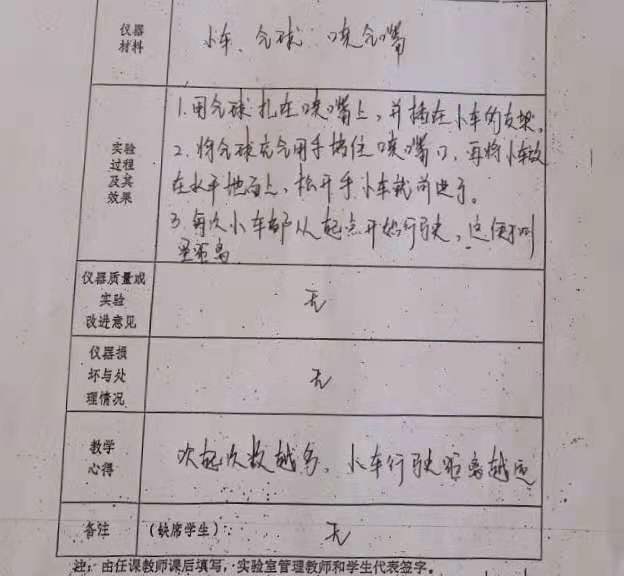 仪器
材料
小车、气球、喷气嘴
实验
过程
及其
效果
1.用气球扎在喷嘴上,并插在小车的支架。
2.将气球充气用手堵住喷嘴口,再将小车放
在水平地面上,松开手小车就前进了。
3.每次小车都从起点开始行驶,这便于测
量距离
仪器质量或
实验
改进意见
无
仪器损
坏与处
理情况
无
教学
心得
吹起次数越多,小车行驶距离越远
备注
(缺席学生):
无
注:由任课教师课后填写,实验室管理教师和学生代表签字。